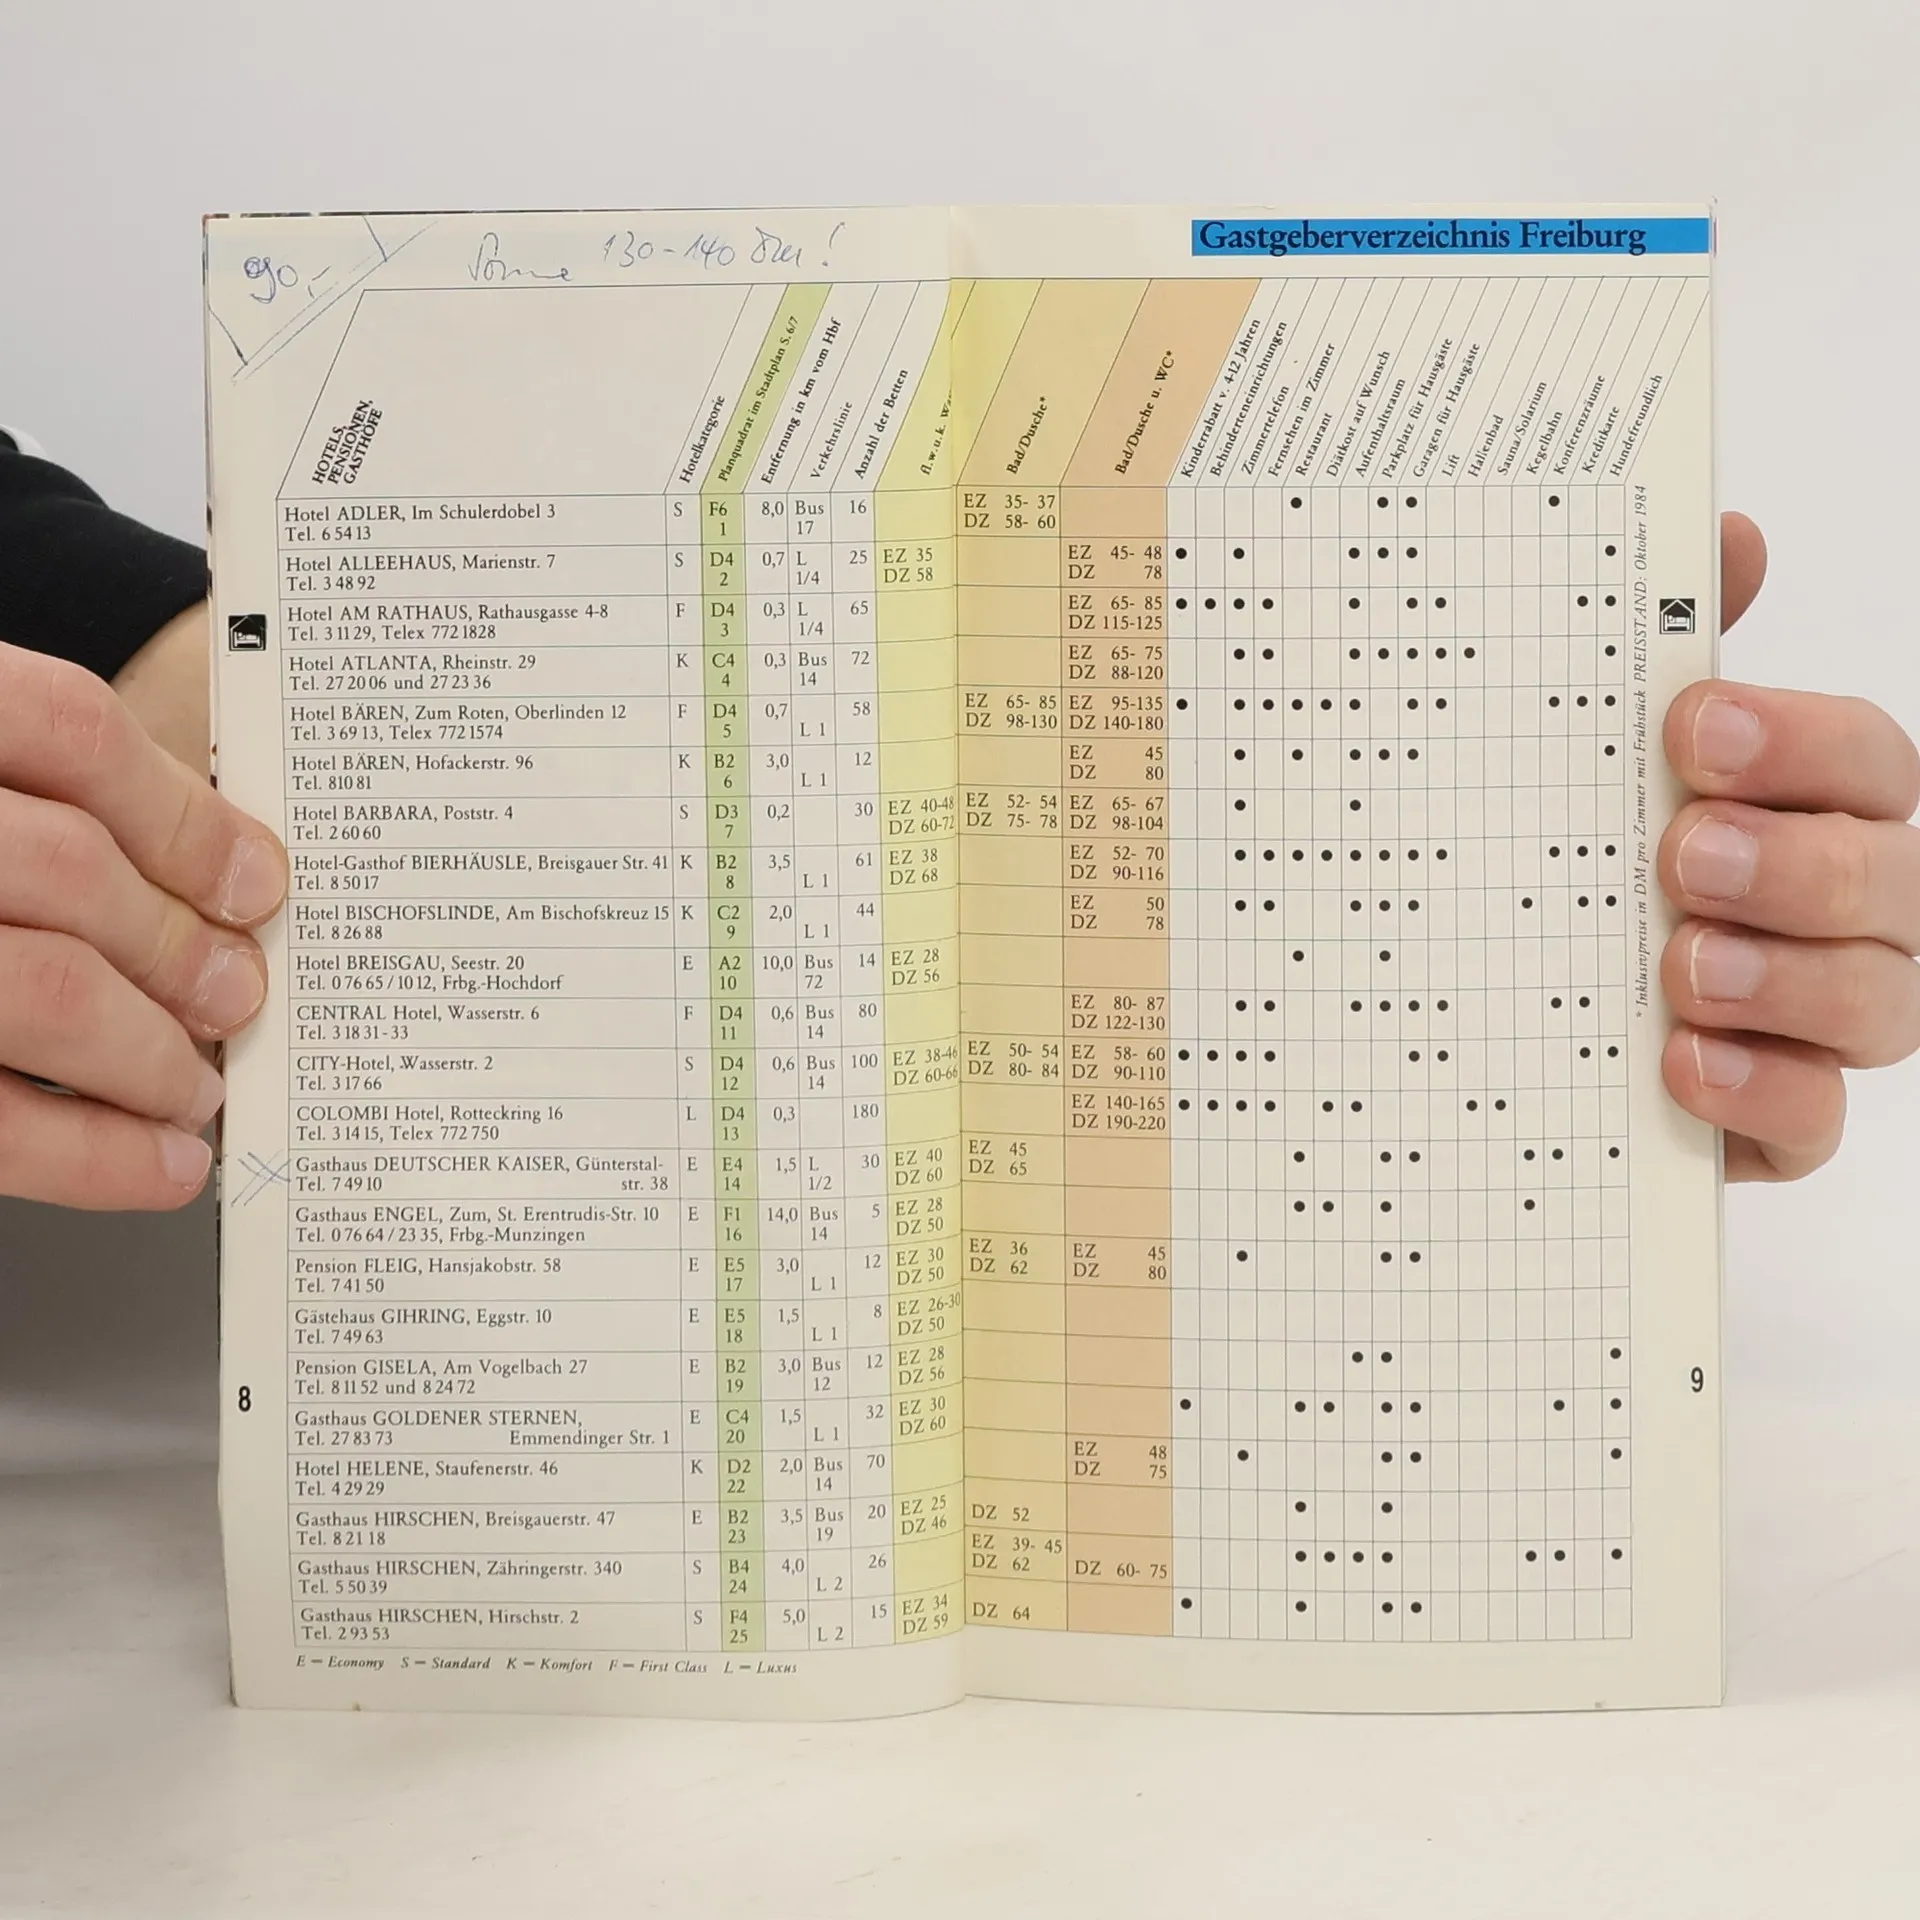 90,-
130-140
Gastgeberverzeichnis Freiburg
HOTELS,
PENSIONEN,
GASTHÖFE
Hotelkategorie
Planquadrat im Stadtplan S. 6/7
Entfernung in km vom Hbf
Verkehrslinie
Anzahl der Betten
fl. w. u. k.
Bad/Dusche*
Bad/Dusche u. WC*
Kinderrabatt v. 4-12 Jahren
Behinderteneinrichtungen
Zimmertelefon
Fernsehen im Zimmer
Restaurant
Diätkost auf Wunsch
Aufenthaltsraum
Parkplatz für Hausgäste
Garagen für Hausgäste
Lift
Hallenbad
Sauna/Solarium
Kegelbahn
Konferenzräume
Kreditkarte
Hundefreundlich
Hotel ADLER, Im Schulerdobel 3 S F6 8,0 Bus 16 EZ 35- 37
Tel. 6 54 13 1 17 DZ 58- 60
Hotel ALLEEHAUS, Marienstr. 7 S D4 0,7 L 25 EZ 35 EZ 45- 48
Tel. 3 48 92 2 1/4 DZ 58 DZ 78
Hotel AM RATHAUS, Rathausgasse 4-8 F D4 0,3 L 65 EZ 65- 85
Tel. 3 11 29, Telex 772 1828 3 1/4 DZ 115-125
Hotel ATLANTA, Rheinstr. 29 K C4 0,3 Bus 72 EZ 65- 75
Tel. 27 20 06 und 27 23 36 4 14 DZ 88-120
Hotel BÄREN, Zum Roten, Oberlinden 12 F D4 0,7 58 EZ 65- 85 EZ 95-135
Tel. 3 69 13, Telex 772 1574 5 L 1 DZ 98-130 DZ 140-180
Hotel BÄREN, Hofackerstr. 96 K B2 3,0 12 EZ 45
Tel. 810 81 6 L 1 DZ 80
Hotel BARBARA, Poststr. 4 S D3 0,2 30 EZ 40-48 EZ 52- 54 EZ 65- 67
Tel. 2 60 60 7 DZ 60-72 DZ 75- 78 DZ 98-104
Hotel-Gasthof BIERHÄUSLE, Breisgauer Str. 41 K B2 3,5 61 EZ 38 EZ 52- 70
Tel. 8 50 17 8 L 1 DZ 68 DZ 90-116
Hotel BISCHOFSLINDE, Am Bischofskreuz 15 K C2 2,0 44 EZ 50
Tel. 8 26 88 9 L 1 DZ 78
Hotel BREISGAU, Seestr. 20 E A2 10,0 Bus 14 EZ 28
Tel. 0 76 65 / 10 12, Frbg.-Hochdorf 10 72 DZ 56
CENTRAL Hotel, Wasserstr. 6 F D4 0,6 Bus 80 EZ 80- 87
Tel. 3 18 31 - 33 11 14 DZ 122-130
CITY-Hotel, Wasserstr. 2 S D4 0,6 Bus 100 EZ 38-46 EZ 50- 54 EZ 58- 60
Tel. 3 17 66 12 14 DZ 60-66 DZ 80- 84 DZ 90-110
COLOMBI Hotel, Rotteckring 16 L D4 0,3 180 EZ 140-165
Tel. 3 14 15, Telex 772 750 13 DZ 190-220
Gasthaus DEUTSCHER KAISER, Günterstal- E E4 1,5 L 30 EZ 40 EZ 45
Tel. 7 49 10 str. 38 14 1/2 DZ 60 DZ 65
Gasthaus ENGEL, Zum, St. Erentrudis-Str. 10 E F1 14,0 Bus 5 EZ 28
Tel. 0 76 64 / 23 35, Frbg.-Munzingen 16 14 DZ 50
Pension FLEIG, Hansjakobstr. 58 E E5 3,0 12 EZ 30 EZ 36 EZ 45
Tel. 7 41 50 17 L 1 DZ 50 DZ 62 DZ 80
Gästehaus GIHRING, Eggstr. 10 E E5 1,5 8 EZ 26-30
Tel. 7 49 63 18 L 1 DZ 50
Pension GISELA, Am Vogelbach 27 E B2 3,0 Bus 12 EZ 28
Tel. 8 11 52 und 8 24 72 19 12 DZ 56
Gasthaus GOLDENER STERNEN, E C4 1,5 32 EZ 30
Tel. 27 83 73 Emmendinger Str. 1 20 L 1 DZ 60
Hotel HELENE, Staufenerstr. 46 K D2 2,0 Bus 70 EZ 48
Tel. 4 29 29 22 14 DZ 75
Gasthaus HIRSCHEN, Breisgauerstr. 47 E B2 3,5 Bus 20 EZ 25 DZ 52
Tel. 8 21 18 23 19 DZ 46
Gasthaus HIRSCHEN, Zähringerstr. 340 S B4 4,0 26 EZ 39- 45
Tel. 5 50 39 24 L 2 DZ 62 DZ 60- 75
Gasthaus HIRSCHEN, Hirschstr. 2 S F4 5,0 15 EZ 34 DZ 64
Tel. 2 93 53 25 L 2 DZ 59
E = Economy S = Standard K = Komfort F = First Class L = Luxus
* Inklusivpreise in DM pro Zimmer mit Frühstück PREISSTAND: Oktober 1984
8
9